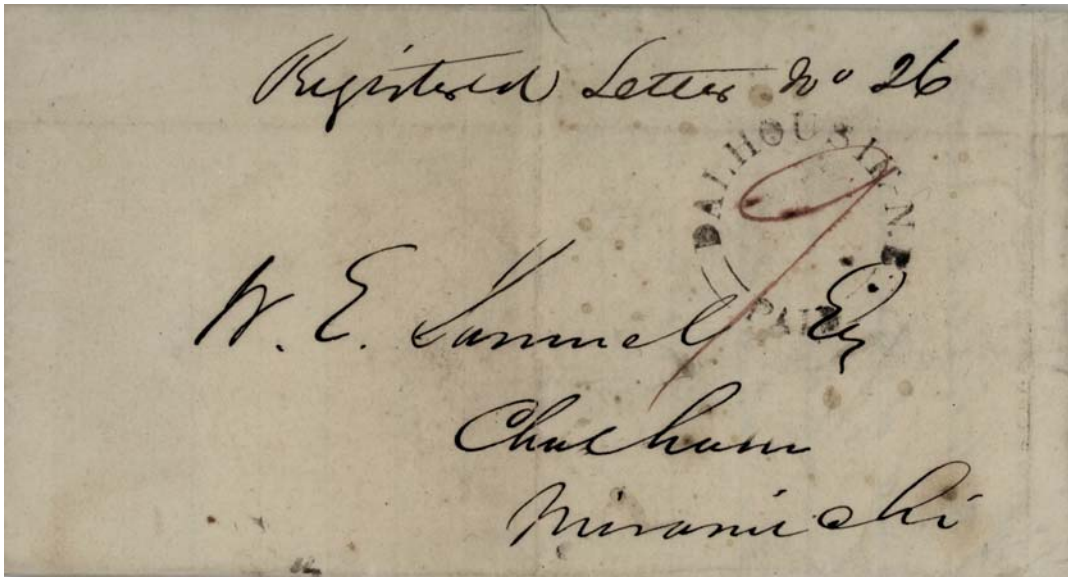 Registered Letter No 26
DALHOUSIE-N.B
PAID
9
W. E. Samuel Esq
Chatham
Miramichi